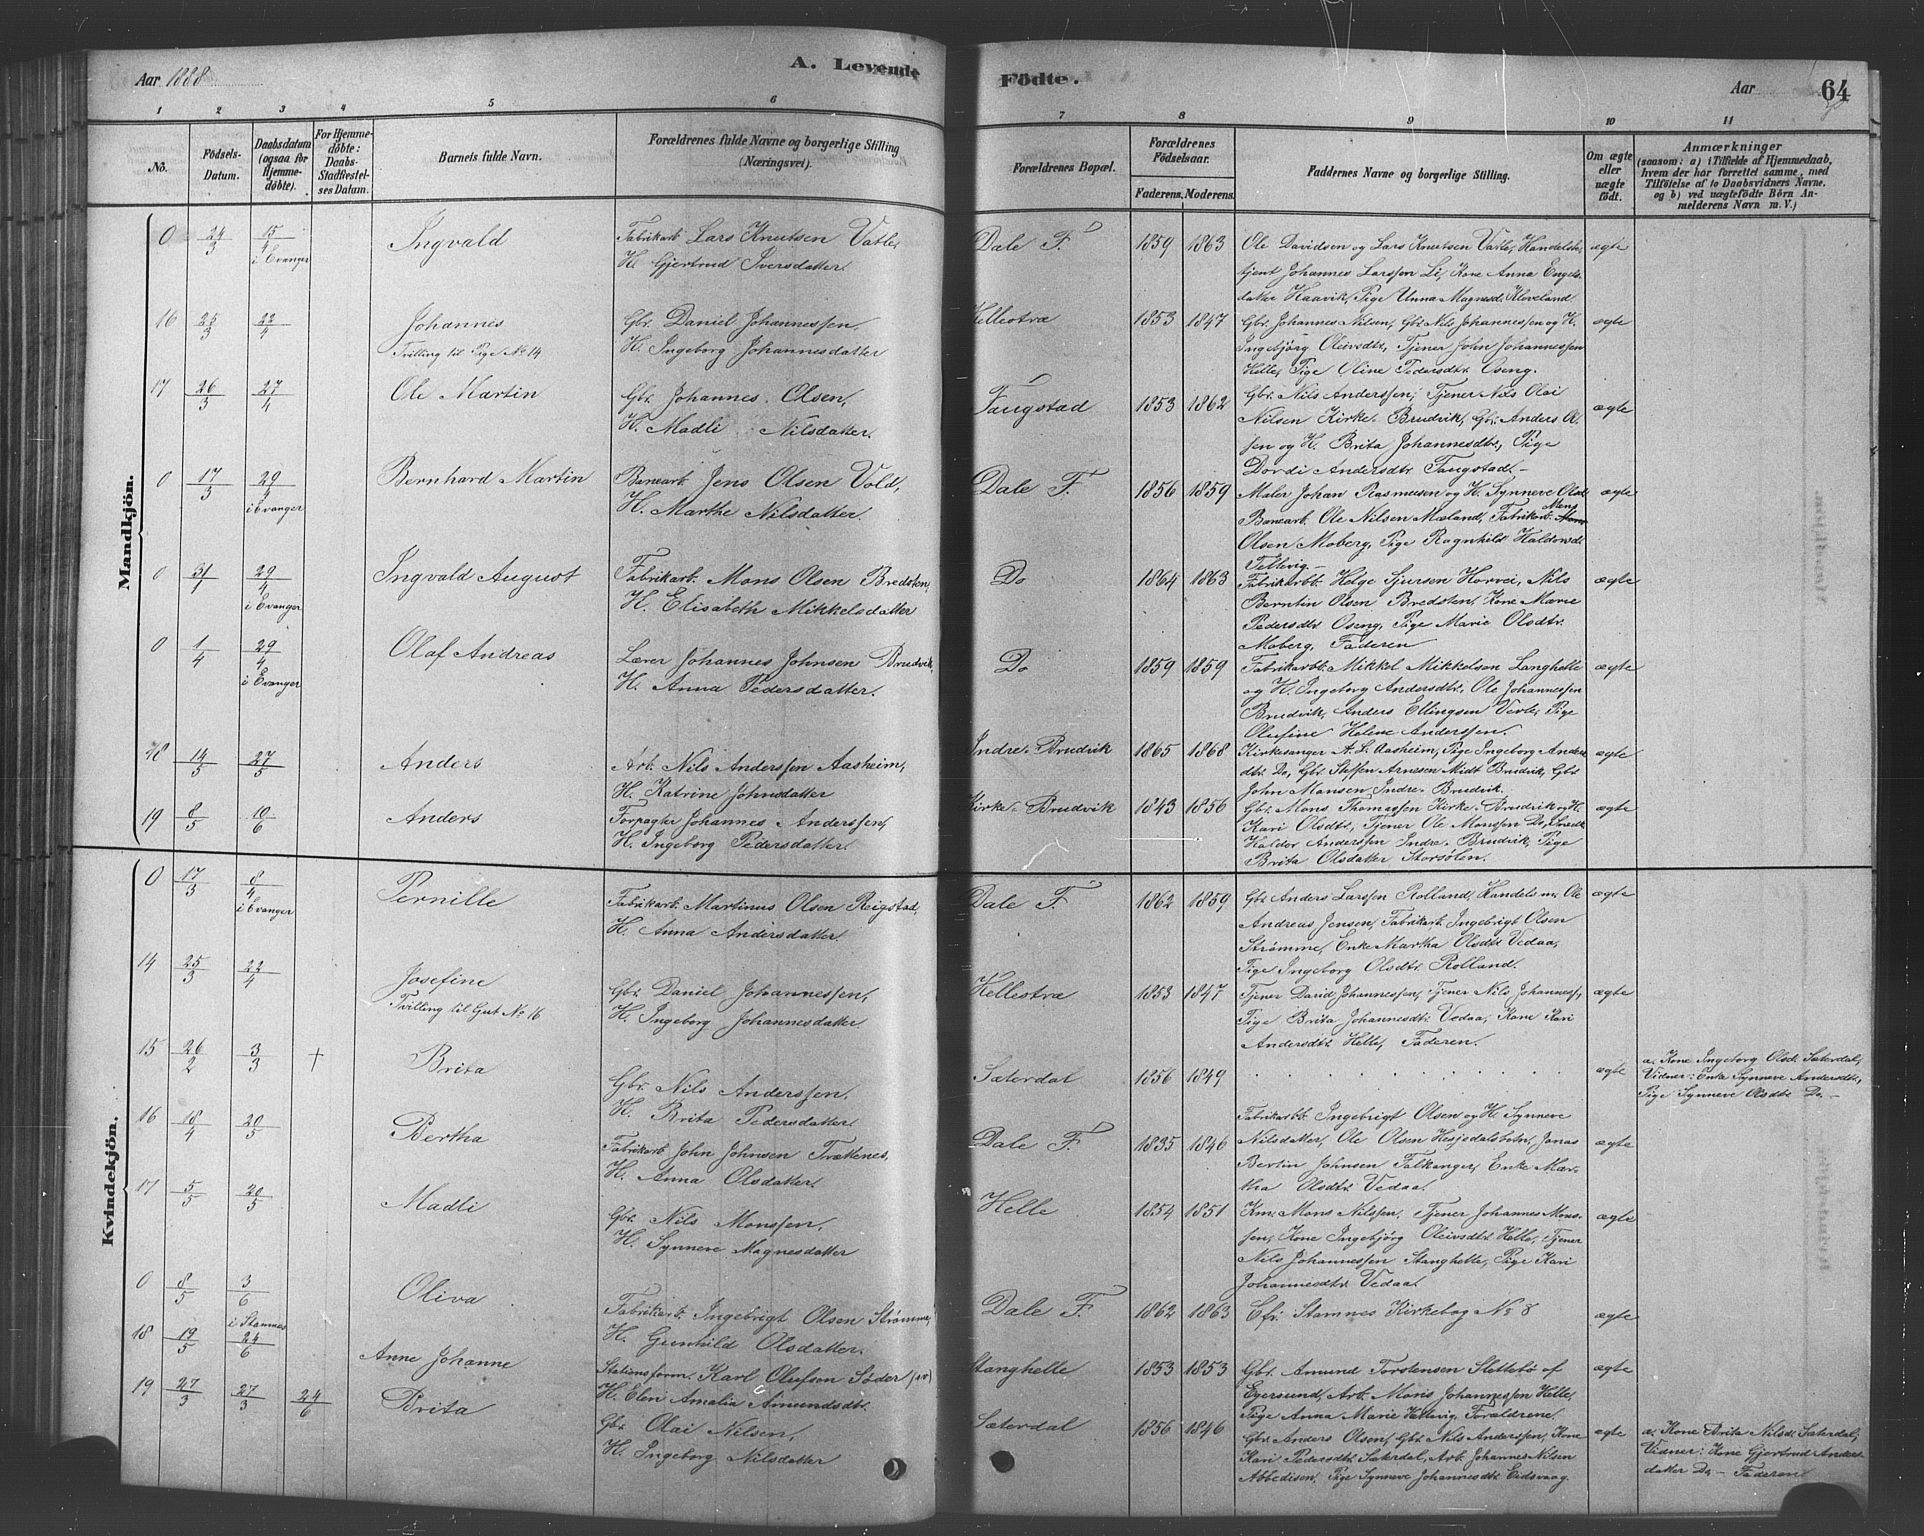 Aar 1888
A. Levende
Födte.
Aar
64
1 2 3 4 5 6 7 8 9 10 11
No.
Födsels-
Datum.
Daabsdatum
(ogsaa for
Hjemme-
døbte).
For Hjemme-
døbte:
Daabs-
Stadfæstel-
ses Datum.
Barnets fulde Navn.
Forældrenes fulde Navne og borgerlige Stilling
(Næringsvei).
Forældrenes Bopæl.
Forældrenes
Födselsaar.
Faderens. Moderens.
Faddernes Navne og borgerlige Stilling.
Om ægte
eller
uægte
födt.
Anmærkninger
(saasom: a) i Tilfælde af Hjemmedaab,
hvem der har forrettet samme, med
Tilföielse af to Daabsvidners Navne,
og b) ved uægtefödte Börn An-
melderens Navn m. V.)
Mandkjön.
0 24/3 15/4 i Evanger
Ingvald
Fabrikarb. Lars Knutsen Vatle,
H. Gjertrud Iversdatter.
Dale F. 1859 1863
Ole Davidsen og Lars Knutsen Vatle, Handels-
tjent Johannes Larssen Li, Kone Anna Engels-
datter Haavik, Pige Unna Magnesd. Kleveland
ægte
16 25/3 22/4
Johannes
Tvilling til Pige No 14
Gbr. Daniel Johannessen,
H. Ingeborg Johannesdatter
Hellestræ 1853 1847
Gbr. Johannes Nilsen, Gbr. Nils Johannessen og H.
Ingebjørg Oleivsdtr., Tjener John Johannessen
Helle, Pige Oline Pedersdtr. Oseng.
ægte
17 26/3 27/4
Ole Martin
Gbr. Johannes Olsen,
H. Madli Nilsdatter.
Fangstad 1853 1862
Gbr. Nils Anderssen, Tjener Nils Olai
Nilsen Kirke-Brudvik, Gbr. Anders Ol-
sen og H. Brita Johannesdtr., Pige
Dordi Andersdtr. Fangstad
ægte
0 17/3 29/4 i Evanger
Bernhard Martin
Banearb. Jens Olsen Vold,
H. Marthe Nilsdatter.
Dale F. 1856 1859
Maler Johan Rasmusen og H. Synneve Olsd.
Banearb. Ole Nilsen Mæland, Fabrikarb. Mons
Olsen Moberg, Pige Ragnhild Haldorsd.
Tellevig
ægte
0 31/ 29/4 i Evanger
Ingvald August
Fabrikarb. Mons Olsen Bredsten,
H. Elisabeth Mikkelsdatter
Do 1864 1863
Fabrikarbb. Helge Sjursen Horvei, Nils
Berntin Olsen Bredsten, Kone Marie
Pedersdtr. Oseng, Pige Marie Olsdtr.
Moberg, Faderen
ægte
0 1/4 29/4 i Evanger
Olaf Andreas
Lærer Johannes Johnsen Brudvik
H. Anna Pedersdatter.
Do 1859 1859
Fabrikarbb. Mikkel Mikkelsen Langhelle
og H. Ingeborg Andersdtr., Ole Johannessen
Brudvik, Anders Ellingsen Verle, Pige
Olufine Helene Anderssen.
ægte
18 14/5 27/5
Anders
Arb. Nils Anderssen Aasheim,
H. Katrine Johnsdatter
Indre-Brudvik 1865 1868
Kirkesanger A. L. Aasheim, Pige Ingeborg Anders-
dtr. Do, Gbr. Steffen Arnesen Midt Brudvik, Gbr.
John Monsen Indre-Brudvik.
ægte
19 8/5 10/6
Anders
Forpagter Johannes Anderssen,
H. Ingeborg Pedersdatter.
Kirke-Brudvik 1843 1856
Gbr. Mons Thomassen Kirke-Brudvik og H.
Kari Olsdtr., Tjener Ole Monssen Do, Smed
Haldor Anderssen Indre-Brudvik, Pige
Brita Olsdatter Storsølen.
ægte
Kvindekjön.
0 17/3 8/4 i Evanger
Pernille
Fabrikarb. Martinus Olsen Reigstad,
H. Anna Andersdatter.
Dale F. 1862 1859
Gbr. Anders Larssen Rolland, Handelsm. Ole
Andreas Jensen, Fabrikarb. Ingebrigt Olsen
Strømme, Enke Martha Olsdtr. Vedaa,
Pige Ingeborg Olsdtr. Rolland.
ægte
14 25/3 22/4
Josefine
Tvilling til Gut No 16
Gbr. Daniel Johannessen,
H. Ingeborg Johannesdatter.
Hellestræ 1853 1847
Tjener David Johannessen, Tjener Nils Johanness.,
Pige Brita Johannesdtr. Vedaa, Kone Kari
Andersdtr. Helle, Faderen.
ægte
15 26/2 3/3 †
Brita
Gbr. Nils Anderssen.
H. Brita Pedersdatter.
Sæterdal 1856 1849
ægte
a. Kone Ingeborg Olsd. Sæterdal,
Vidner: Enke Synneve Andersdtr.,
Pige Synneve Olsdtr. Do.
16 18/4 20/5
Bertha
Fabrikarb. John Johnsen Trættenes,
H. Anna Olsdatter.
Dale F. 1835 1846
Fabrikarbb. Ingebrigt Olsen og H. Synneve
Nilsdatter, Ole Olsen Hesjedalsbotn, Jonas
Bertin Johnsen Falkanger, Enke Mar-
tha Olsdtr. Vedaa.
ægte
17 5/5 20/5
Madli
Gbr. Nils Monssen,
H. Synneve Magnesdatter
Helle 1854 1851
Km. Mons Nilssen, Tjener Johannes Mons-
sen, Kone Ingebjörg Oleivsdtr. Helle, Tjener
Nils Johannessen Stanghelle, Pige Kari
Johannesdtr. Vedaa.
ægte
0 8/5 3/6 i Stamnes
Oliva
Fabrikarb. Ingebrigt Olsen Strømme,
H. Gunhild Olsdatter.
Dale F. 1862 1863
Cfr. Stamnes Kirkebog No 8
ægte
18 19/5 24/6
Anne Johanne
Stationsform. Karl Olufsen Søder
H. Elen Amalia Amundsdtr.
Stanghelle 1853 1853
Gbr. Amund Torstensen Slettebø af
Egersund, Arb. Mons Johannessen Helle,
Pige Anna Marie Hettervig, Forældrene
ægte
19 27/3 27/3 24/6
Brita
Gbr. Olai Nilsen,
H. Ingeborg Nilsdatter
Sæterdal 1856 1846
Gbr. Anders Olsen, Gbr. Nils Anderssen, Kone
Kari Pedersdtr. Sæterdal, Arb. Johannes Nilsen
Abbedisen, Pige Synneve Johannesdtr. Eidsvaag
ægte
a. Kone Brita Nilsd. Sæterdal,
Vidner: Kone Gjertrud Anders-
datter Do, Faderen